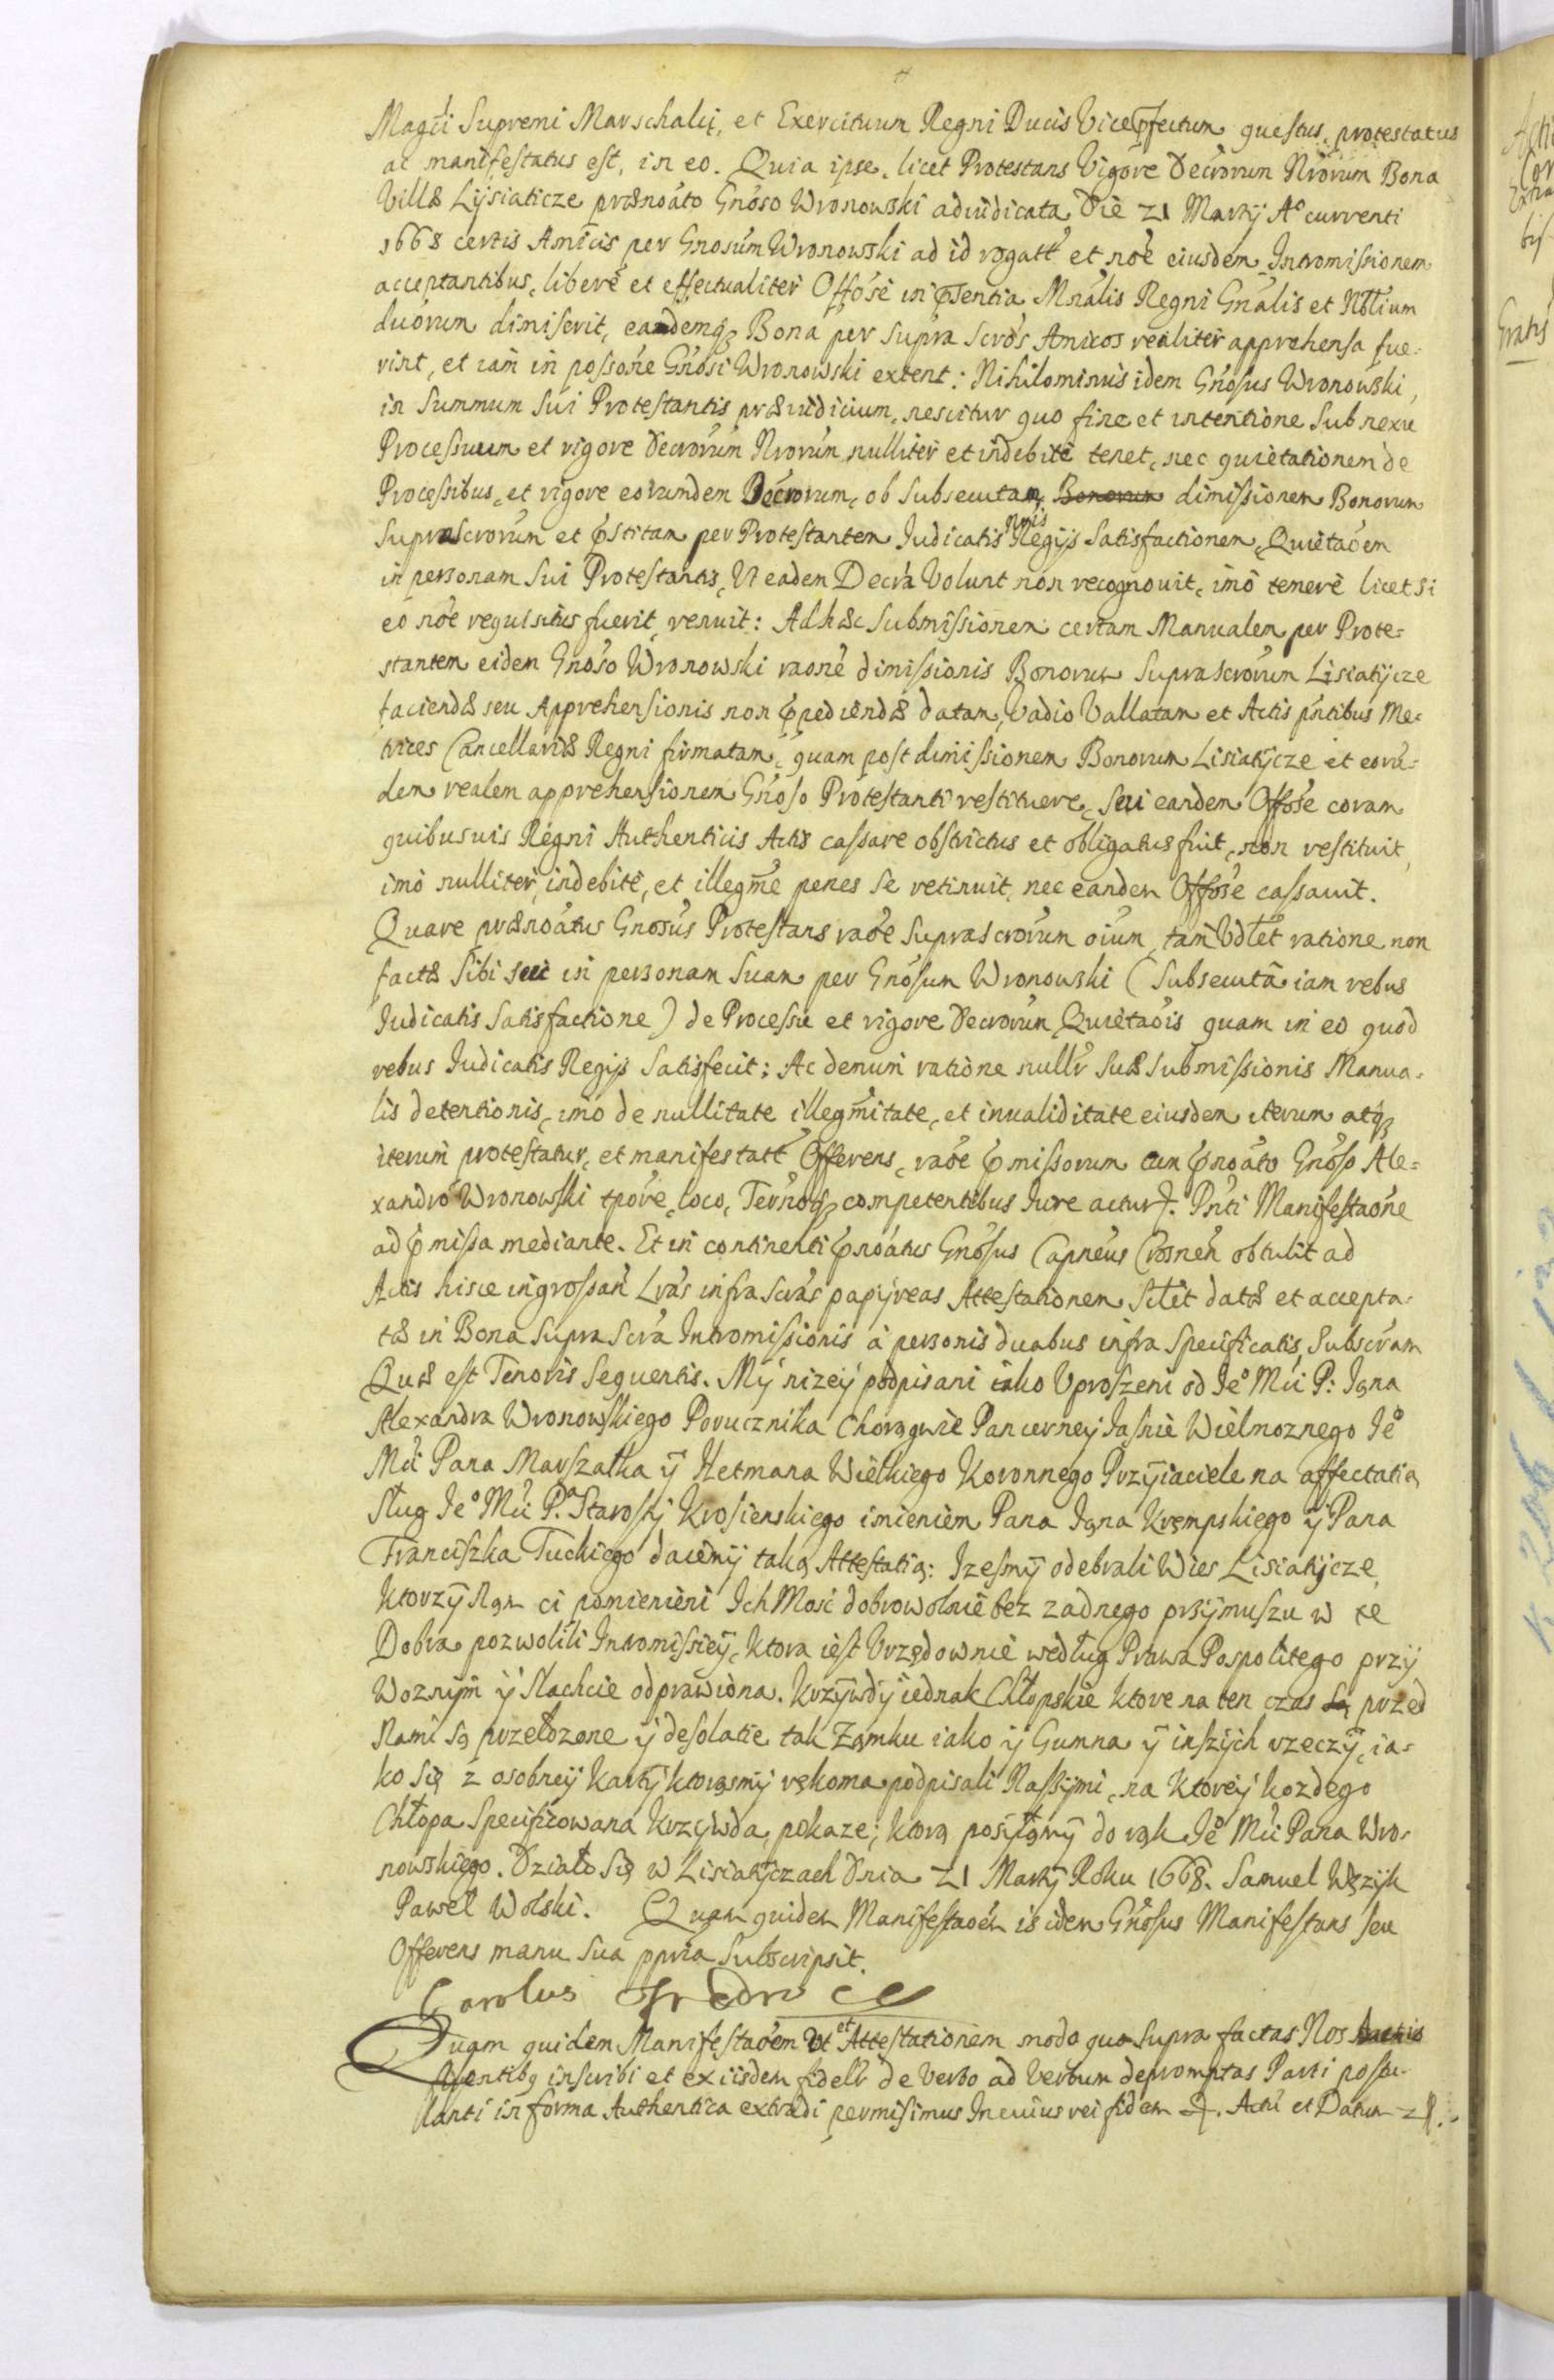 Magci Supremi Marschalci, et Exercituum Regni Ducis Vicepfectum questus, protestatus
ac manifestatus est, in eo. Quia ipse, licet Protestans Vigore Decrorum Nrorum Bona
Villæ Lysiaticze prænoato Gnoso Wronowski adiudicata Die 21 Martij Aº currenti
1668 certis Amicis per Gnosum Wronowski ad id rogatt et noe eiusdem Intromissionem
acceptantibus, libere et effectualiter Offose in psentia Mnalis Regni Gnalis et Nbtium
duorum dimiserit, eandemq Bona per supra scros Amicos realiter apprehensa fue=
rint, et iam in possone Gnosi Wronowski extent: Nihilominus idem Gnosus Wronowski,
in summum sui Protestantis præiudicium, nescitur quo fine et intentione sub nexu
Processuum et rigore Decrorum Nrorum nulliter et indebite tenet, nec quietationem de
Processibus, et rigore eorundem Decrorum, ob subsecutam, Bonorum dimissionem Bonorum
suprascrorum et pstitam per Protestantem Judicatis nris Regijs satisfactionem, Quietaoem
in personam sui Protestantis, Ut eadem Decra Volunt non recognouit, imo temere licet si
eo noe requisitus fuerit, renuit: Ad hæc submissionem certam Manualem per Prote=
stantem eidem Gnoso Wronowski raone dimissionis Bonorum suprascrorum Lisiatycze
faciendæ seu Apprehensionis non pediendæ datam, Vadio Vallatam et Actis pntibus Me=
trices Cancellariæ Regni firmatam, quam post dimissionem Bonorum Lisiatycze et eorū=
dem realem apprehensionem Gnoso Protestanti restituere, seu eandem Offose coram
quibusuis Regni Authenticis Actis cassare obstrictus et obligatus fuit, non restituit,
imo nulliter, indebite, et illegme penes se retinuit, nec eandem Offose cassauit.
Quare prænoatus Gnosus Protestans raoe suprascrorum oium, tam Vdlet ratione non
factæ sibi seu in personam suam per Gnosum Wronowski (subsecuta iam rebus
Judicatis satisfactione) de Processu et rigore Decrorum Quietaois quam in eo quod
rebus Judicatis Regijs satisfecit: Ac demum ratione nullr suæ submissionis Manua=
lis detentionis, imo de nullitate illegmitate, et inualiditate eiusdem iterum atq
iterum protestatur, et manifestatt Offerens, raoe pmissorum cum pnoato Gnoso Ale=
xandro Wronowski tpore, loco, Ternoq competentibus Jure actur. Pnti Manifestaone
ad pmissa mediante. Et in continenti pnoatus Gnosus Capneus Crosnen obtulit ad
Actis hisce ingrossan Lras infra scras papyreas Attestationem scilet datæ et accepta=
tæ in Bona supra scra Intromissionis à personis duabus infra specificatis, subscram
Quæ est Tenoris sequentis. My nizey podpisani iako Uproszeni od Jeº Mci P: Jana
Alexandra Wronowskiego Porucznika Chorągwie Pancerney Jasnie Wielmoznego Jeº
Mci Pana Marszałka y Hetmana Wielkiego Koronnego Przyiaciele na affectatią
sług Jeº Mci P.ª Starosty Krosienskiego imieniem Pana Jana Krempskiego y Pana
Franciszka Tuckiego daiemy taką Attestatią: Izesmy odebrali Wies Lisiatycze,
Ktorzy Nam ci pomienieni Ich Mosc dobrowolnie bez zadnego przymuszu w te
Dobra pozwolili Intromissiey, ktora iest Urzędownie według Prawa Pospolitego przy
Woznym y slachcie odprawiona. Krzywdy iednak Chłopskie ktore na ten czas są przed
Nami są przełozone y desolatie tak Zamku iako y Gumna y inszych rzeczy, ia=
ko się z osobney karty ktorąsmy rękoma podpisali Naszymi, na ktorey kozdego
Chłopa specificowana krzywda, pokaze; ktorą posyłamy do rąk Jeº Mci Pana Wro=
nowskiego. Działo się w Lisiatyczach Dnia 21 Martij Roku 1668. Samuel Węzyk
Paweł Wolski. Quam quidem Manifestaoem is idem Gnosus Manifestans seu
Offerens manu sua ppria subscripsit.
Carolus Fredro
Quam quidem Manifestaoem et Attestationem modo quo supra factas Nos
pntibq inscribi et ex iisdem fidelr de Verbo ad Verbum depromptas Parti postu=
lanti in forma Authentica extradi permisimus In cuius rei fidem. Actū et Datum
Gratis